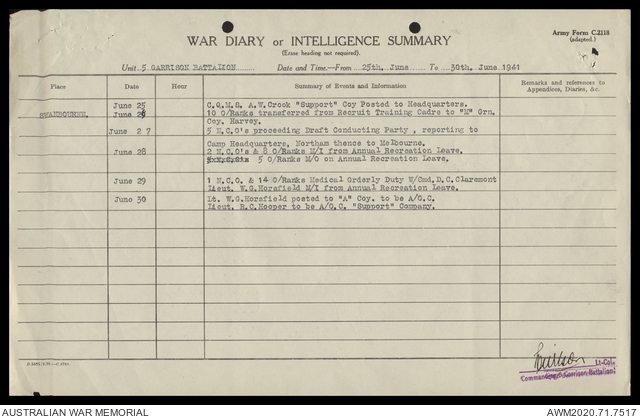 Army Form C.2118
(adapted.)
WAR DIARY or INTELLIGENCE SUMMARY
(Erase heading not required).
Unit 5 GARRISON BATTALION Date and Time—From 25th. June To 30th. June 1941
Place Date Hour Summary of Events and Information Remarks and references to Appendices, Diaries, &c.
June 25 C.Q.M.S. A.W. Crook "Support" Coy Posted to Headquarters.
SWANBOURNE. June 26 10 O/Ranks transferred from Recruit Training Cadre to "M" Grn.
Coy. Harvey.
June 27 5 N.C.O's proceeding Draft Conducting Party , reporting to
Camp Headquarters, Northam thence to Melbourne.
June 28 2 N.C.O's & 8 O/Ranks M/I from Annual Recreation Leave.
5 O/Ranks M/O on Annual Recreation Leave.
June 29 1 N.C.O. & 14 O/Ranks Medical Orderly Duty W/Cmd, D.C. Claremont
Lieut. W.G. Horsfield M/I from Annual Recreation Leave.
June 30 Lt. W.G. Horsfield posted to "A" Coy. to be A/O.C.
Lieut. R.C. Hooper to be A/O.C. "Support" Company.
Lt-Col.
Commanding 5 Garrison Battalion
AUSTRALIAN WAR MEMORIAL AWM2020.71.7517